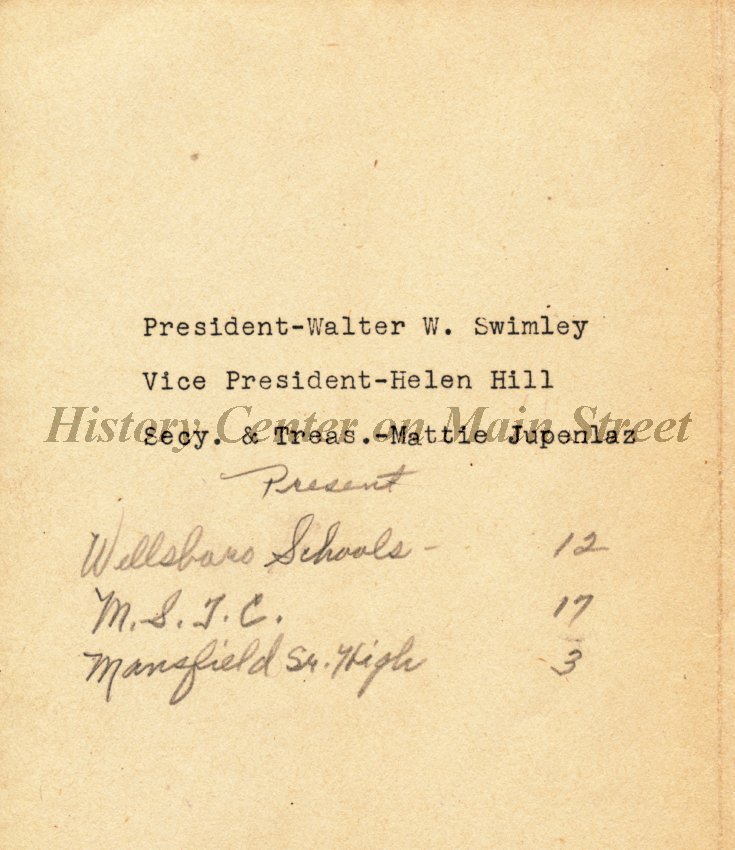 President-Walter W. Swimley
Vice President-Helen Hill
History Center on Main Street
Secy. & Treas.-Mattie Jupenlaz
Present
Wellsboro Schools - 12
M.S.T.C. 17
Mansfield Sr. High 3